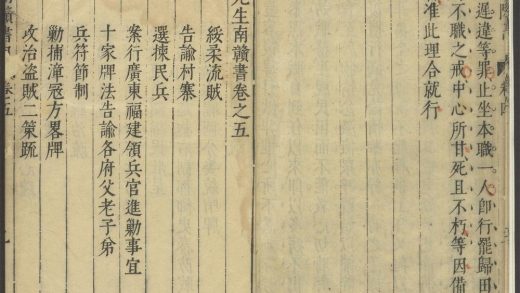 遲違等罪止坐本職一人卽行罷歸田
不職之戒中心所甘死且不朽等因備
准此理合就行
先生南贛書卷之五
綏柔流賊
告諭村寨
選揀民兵
案行廣東福建領兵官進勦事宜
十家牌法告諭各府父老子弟
兵符節制
勦捕漳寇方畧牌
攻治盜賊二策疏
南贛書
卷之五